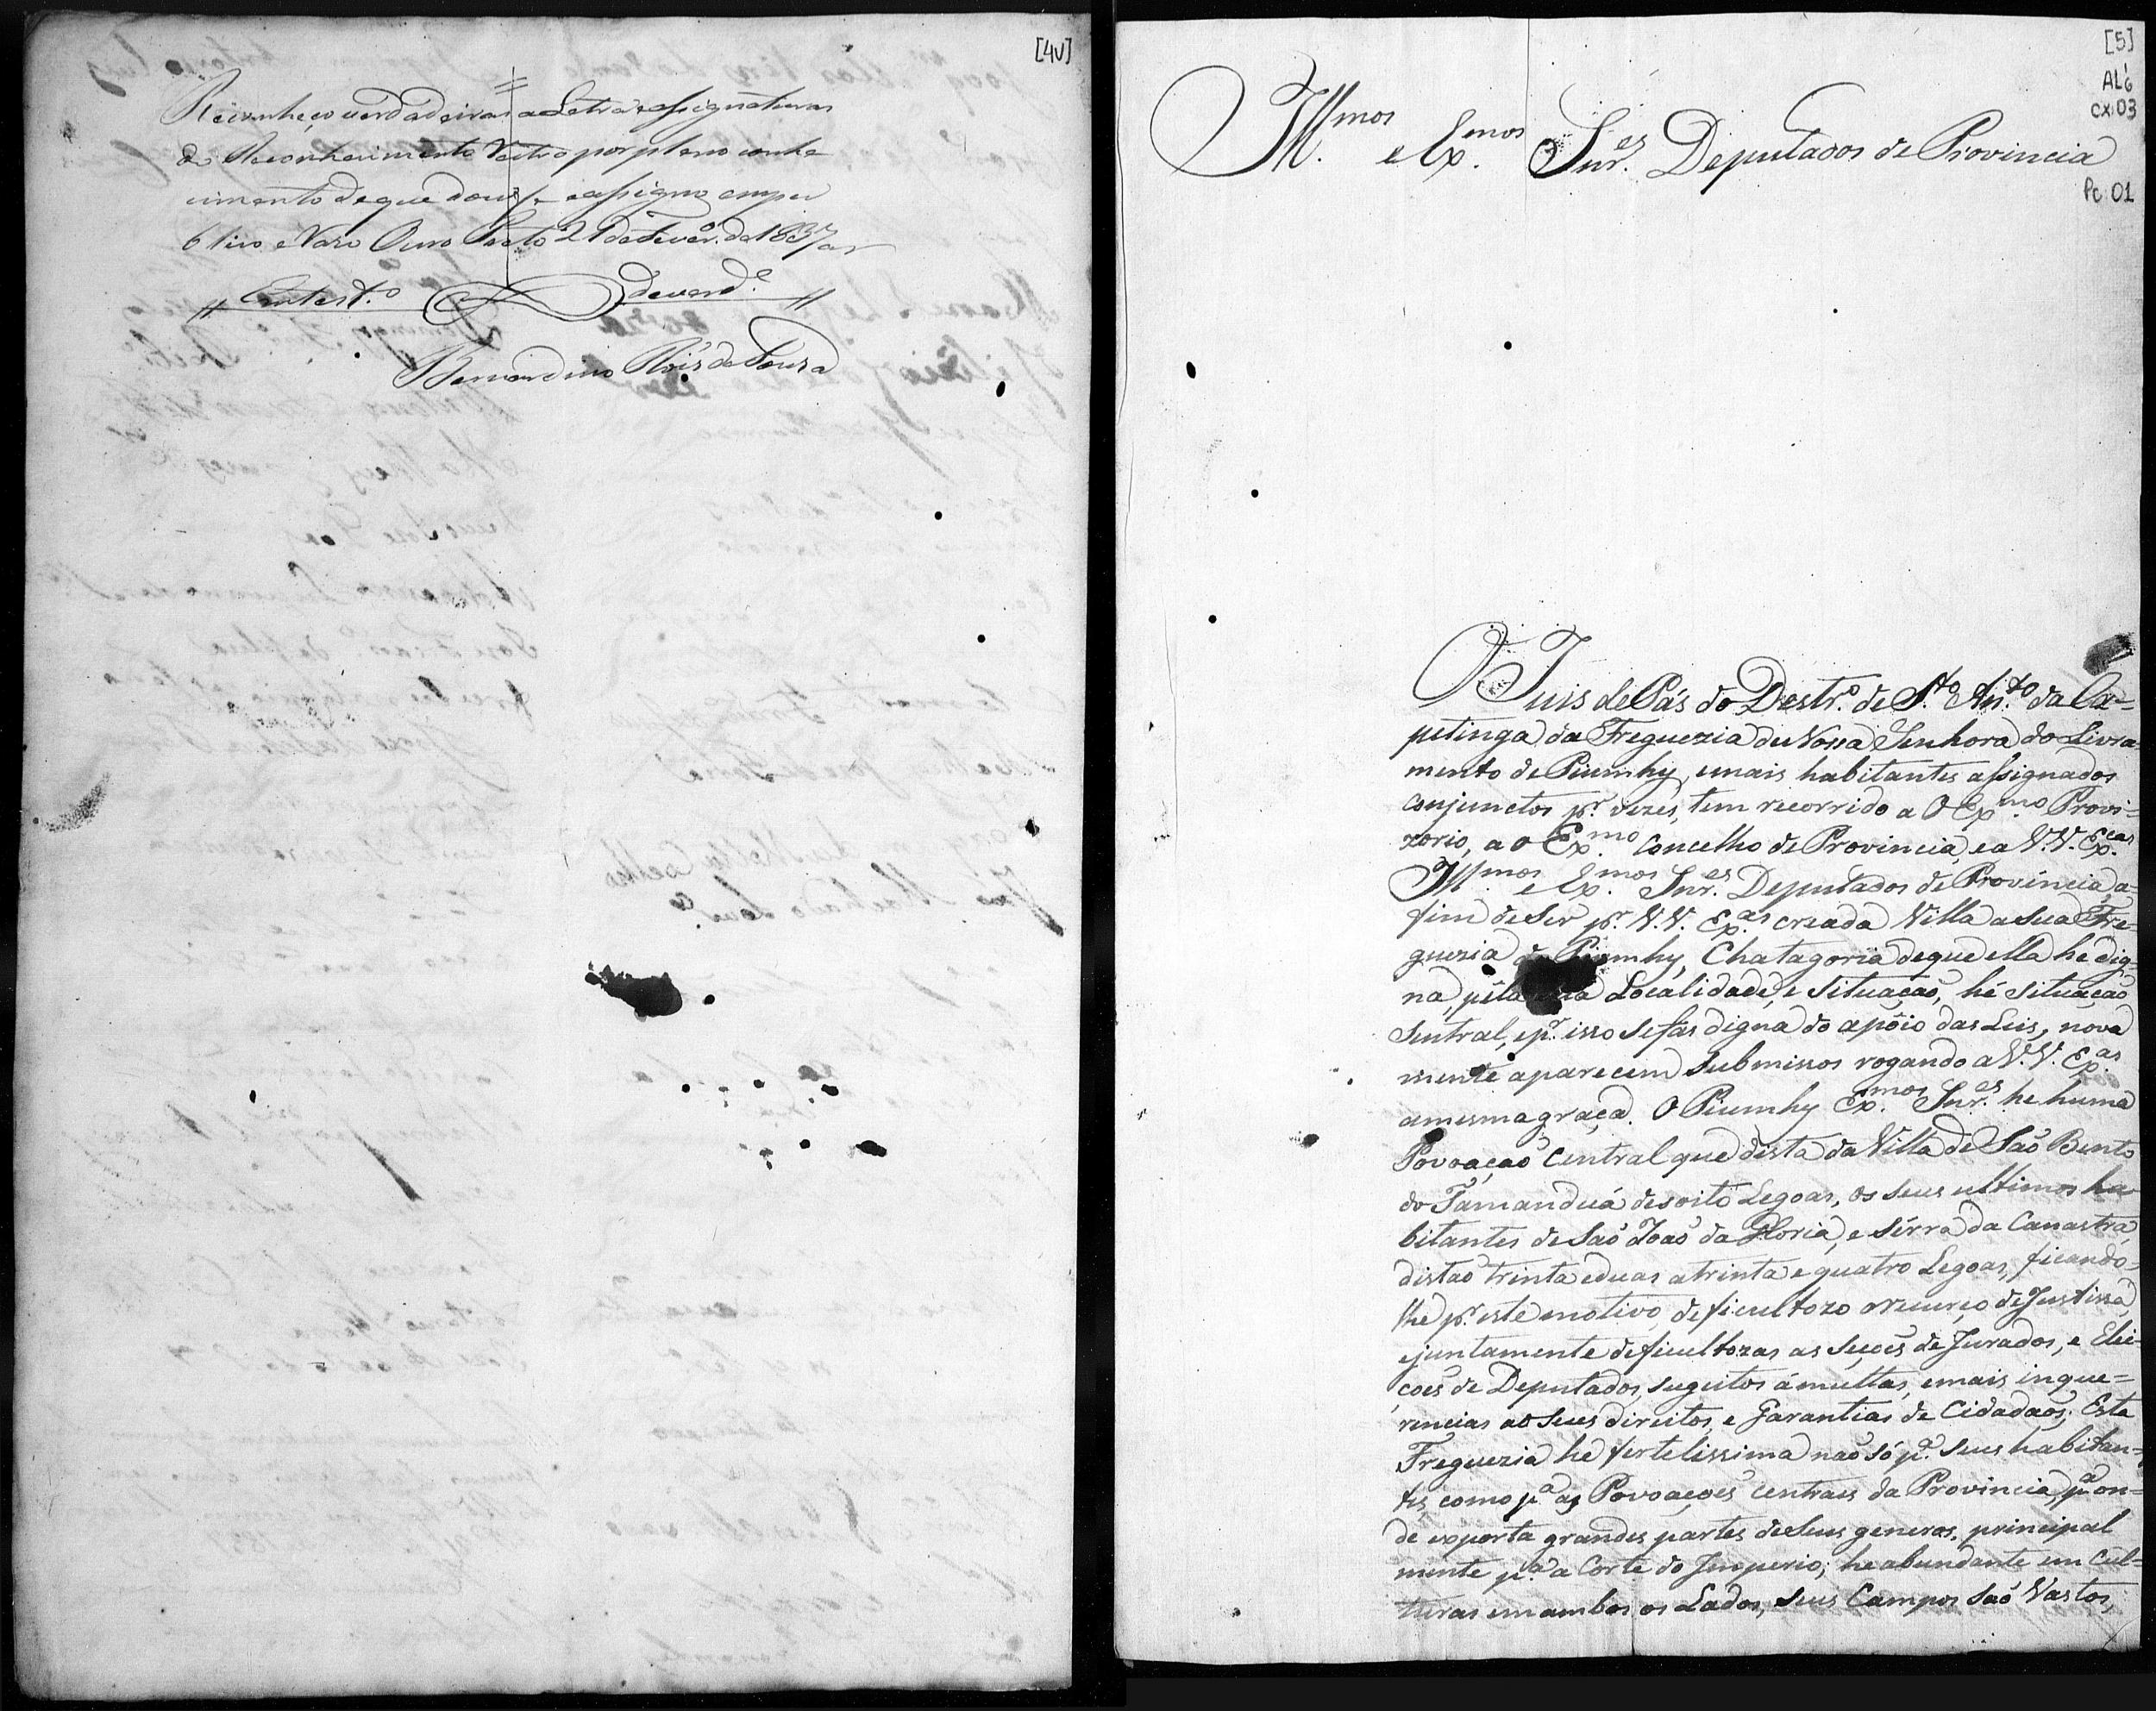 [4v]
Reconheço verdadeiras a Letra e assignaturas
do Reconhecimento Retro por pleno conhe
cimento de que dou fe e assigno em pu
blico e Razo Ouro Preto 21 de Fever.º de 1837
Em test.º de verd.e
Bernardino Róis de Souza
[5]
AL6
cx:03
Pc 01
Ill.mos e Ex.mos Snr.es Deputados de Provincia
O Juis de Pás do Destr.º de S.to An.to da Ca=
petinga da Freguezia de Nossa Senhora do Livra=
mento de Piumhy, e mais habitantes assignados
conjunctos p.r vezes, tem recorrido a O Ex.mo Provi=
zorio, a o Ex.mo Concelho de Provincia, e a V.V. Ex.cas
Ill.mos e Ex.mos Snr.es Deputados de Provincia, a=
fim de Ser p.r V.V. Ex.as creada Villa a Sua Fre=
guezia de Piumhy, Chatagoria de que ella he dig=
na, pela sua Localidade, e Situação, hé Situação
Sentral, e p.r isso se fás digna do apôio das Leis, nova
mente aparecem Submissos rogando a V.V. Ex.as
a mesma graça. O Piumhy Ex.mos Snr.es he huma
Povoação Central que dista da Villa de São Bento
do Tamanduá desoito Legoas, os seus ultimos ha
bitantes de São João da Gloria, e Sérra da Canastra,
distão trinta e duas a trinta e quatro Legoas, ficando=
lhe p.r este motivo, deficultozo o recurço de Justissa,
e juntamente deficultozas as Seçoēs de Jurados, e Elei=
çoēs de Deputados, sugeitos á multas, e mais inque=
rencias ao Seus direitos, e Garantias de Cidadaōs; Esta
Freguezia he fertelissima não só p.a seus habitan=
tes, como p.a as Povoaçoēs centrais da Provincia, p.a on=
de exporta grandes partes de Seus generos, principal
mente p.a a Corte do Imperio; he abundante em Cul=
turas em ambos os Lados, Seus Campos São Vastos,